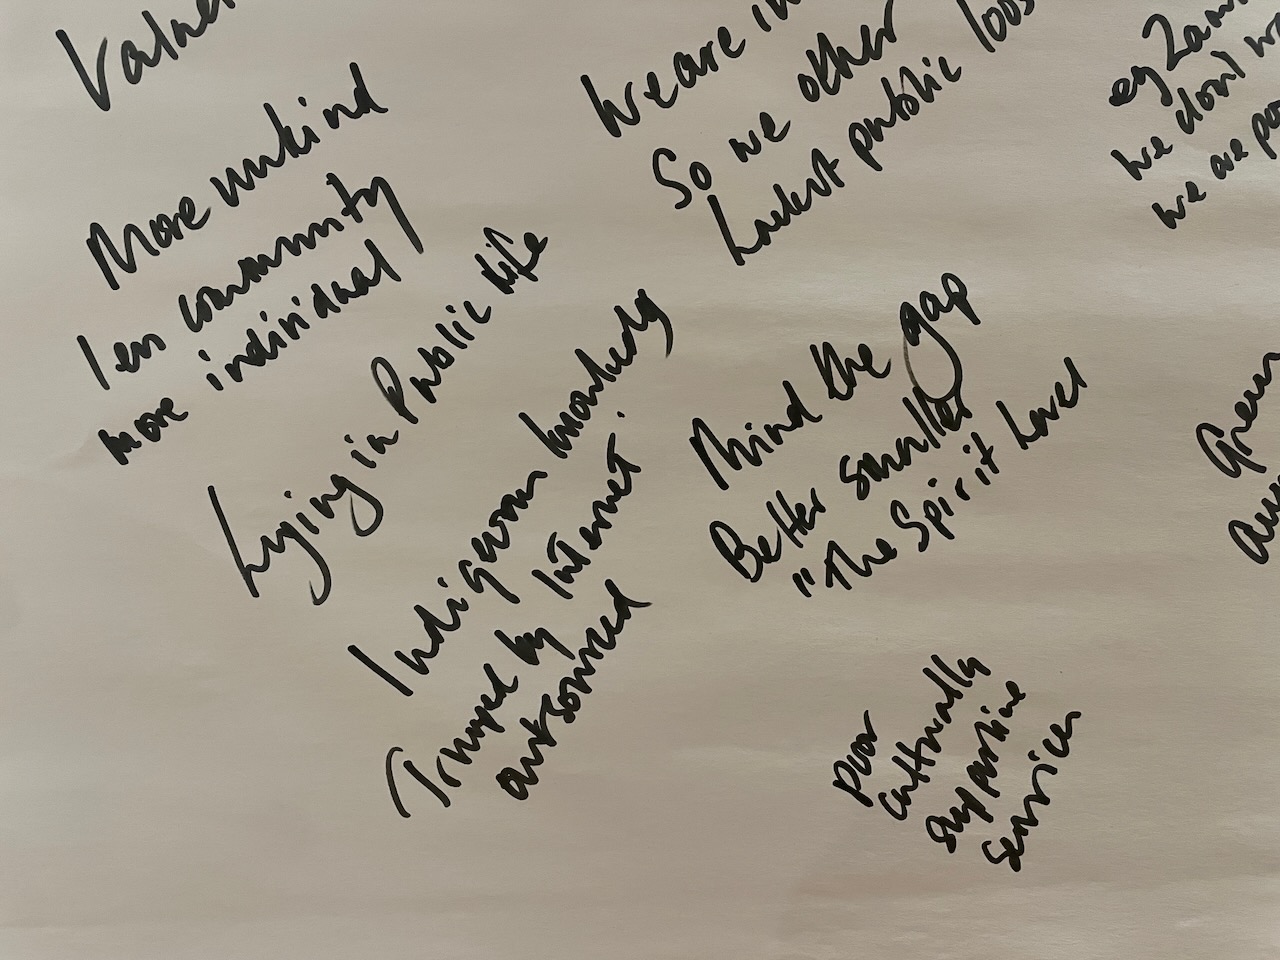 Values
More unkind
less community
more individual
Lying in Public life
Indigenous knowledg
Trumped by Internet.
outsourced
We are in
So we other
public
Mind the gap
Better smaller
"The Spirit Level
Poor
culturally
supportive
services
eg Zam
we don't w
we are po
Green